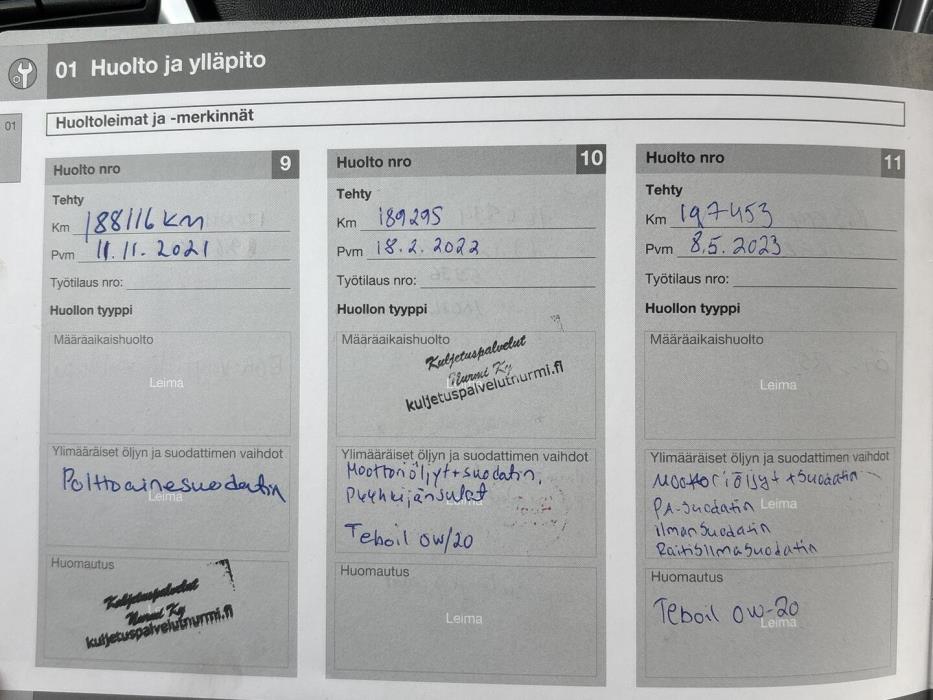 01 Huolto ja ylläpito
01
Huoltoleimat ja -merkinnät
Huolto nro 9
Tehty
Km 188116 km
Pvm 11.11.2021
Työtilaus nro:
Huollon tyyppi
Määräaikaishuolto
Leima
Ylimääräiset öljyn ja suodattimen vaihdot
Polttoainesuodatin
Leima
Huomautus
Kuljetuspalvelut
Nurmi Ky
kuljetuspalvelutnurmi.fi
Huolto nro 10
Tehty
Km 189295
Pvm 18.2.2022
Työtilaus nro:
Huollon tyyppi
Määräaikaishuolto
Kuljetuspalvelut
Nurmi Ky
kuljetuspalvelutnurmi.fi
Ylimääräiset öljyn ja suodattimen vaihdot
Moottoriöljyt+suodatin,
Pyyhkijänsulat
Leima
Teboil 0W/20
Huomautus
Leima
Huolto nro 11
Tehty
Km 197453
Pvm 8.5.2023
Työtilaus nro:
Huollon tyyppi
Määräaikaishuolto
Leima
Ylimääräiset öljyn ja suodattimen vaihdot
Moottoriöljyt +suodatin
PA-suodatin Leima
ilmansuodatin
Raitisilmasuodatin
Huomautus
Teboil 0W-20
Leima